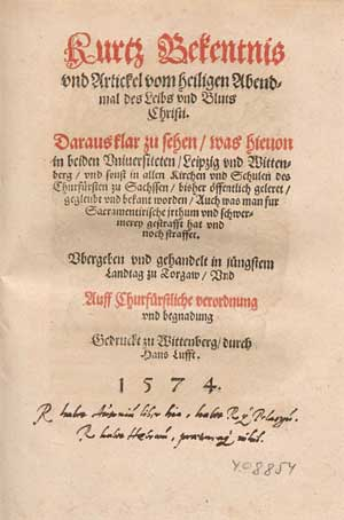 Kurtz Bekentnis
vnd Artickel vom heiligen Abend-
mal des Leibs vnd Bluts
Christi.
Daraus klar zu sehen / was hieuon
in beiden Vniuersiteten / Leipzig vnd Witten-
berg / vnd sonst in allen Kirchen vnd Schulen des
Churfürsten zu Sachssen / bisher öffentlich geleret /
gegleubt vnd bekant worden / Auch was man fur
Sacramentirische jrthum vnd schwer-
merey gestrafft hat vnd
noch straffet.
Vbergeben vnd gehandelt in jüngstem
Landtag zu Torgaw / Vnd
Auff Churfürstliche verordnung
vnd begnadung
Gedruckt zu Wittenberg / durch
Hans Lufft.
1574.